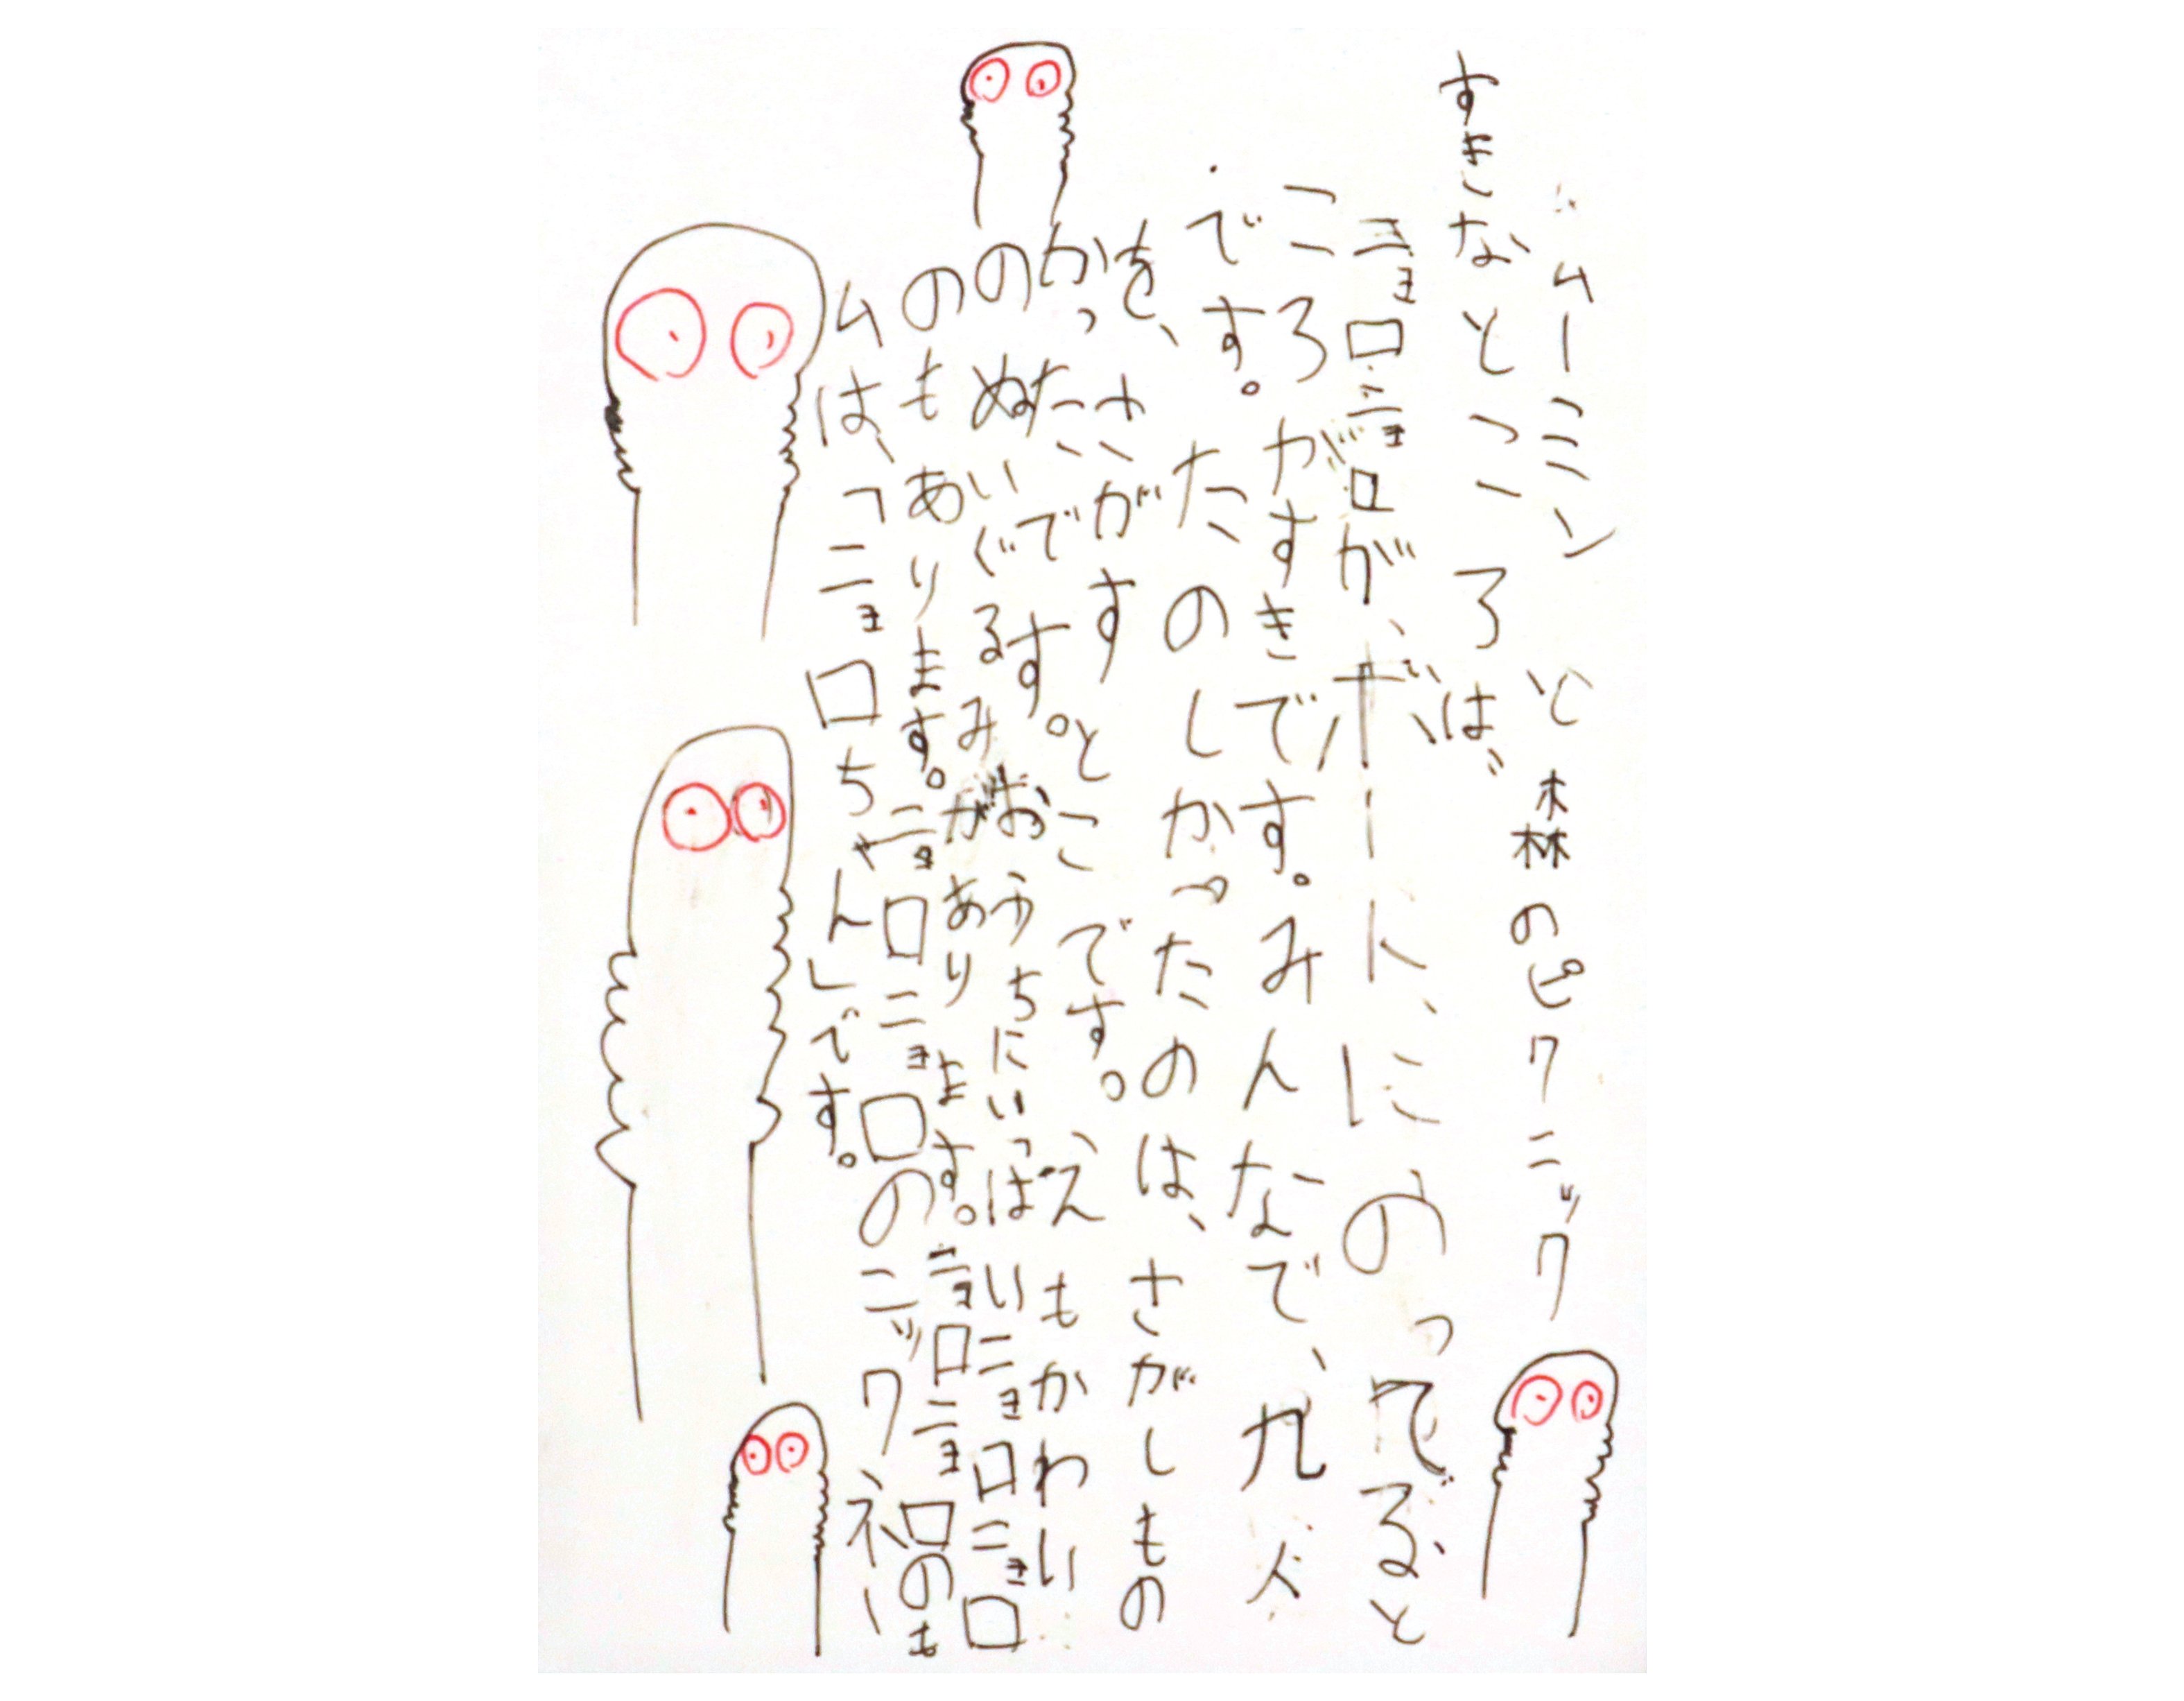 ムーミンと森のピクニック
すきなところは、
ニョロニョロが、ボート、にのってると
ころがすきです。みんなで、九人
です。たのしかったのは、さがしもの
を、さがすとこです。、えもかわい
かったです。おうちにいっぱいニョロニョロ
のぬいぐるみがあります。ニョロニョロのも
のもあります。ニョロニョロのニックネー
ムは、「ニョロちゃん」です。